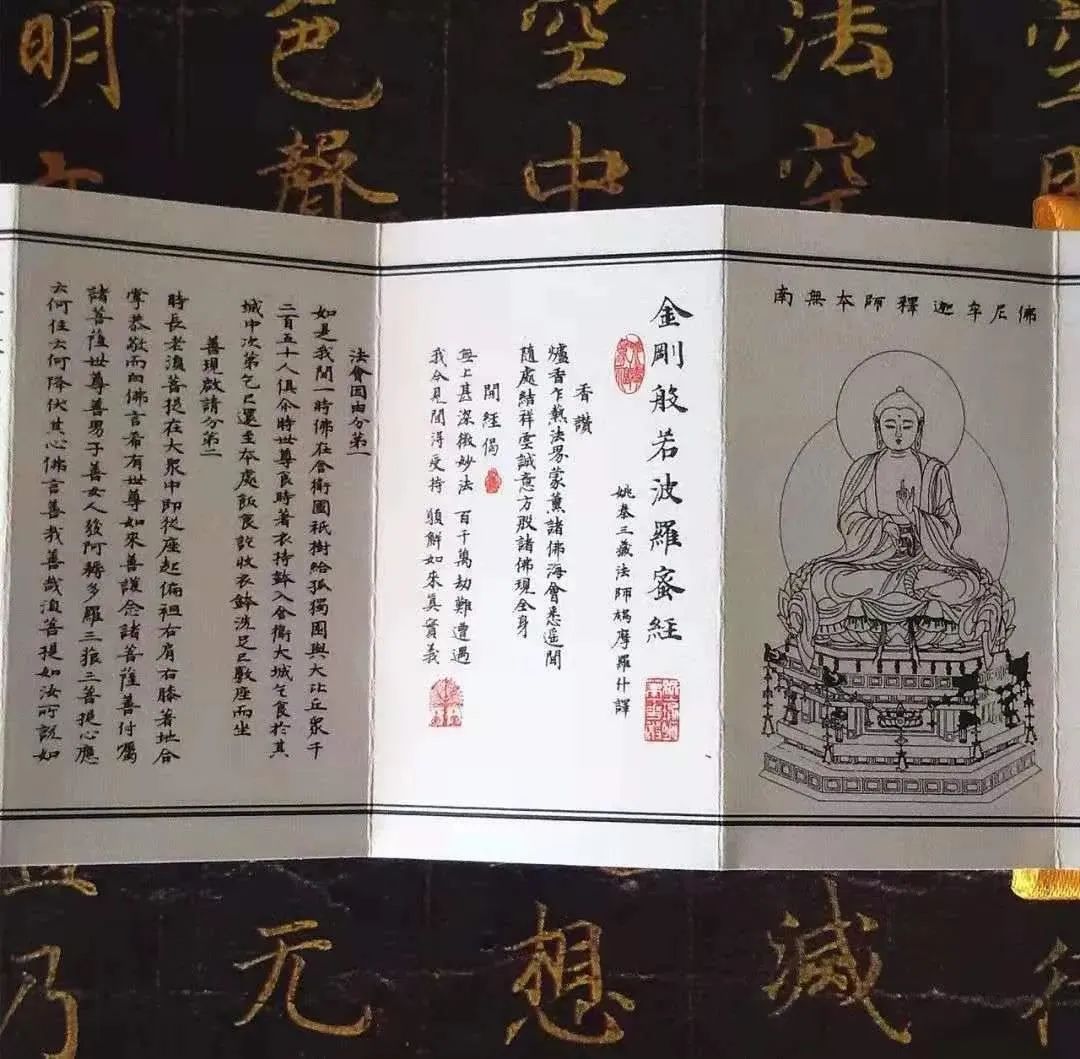 南無本師釋迦牟尼佛
金剛般若波羅蜜經
姚秦三藏法師鳩摩羅什譯
香讚
爐香乍爇法界蒙薰諸佛海會悉遥聞
隨處結祥雲誠意方殷諸佛現全身
開經偈
無上甚深微妙法 百千萬劫難遭遇
我今見聞得受持 願解如來真實義
法會因由分第一
如是我聞一時佛在舍衛國祇樹給孤獨園與大比丘眾千
二百五十人俱尒時世尊食時著衣持鉢入舍衛大城乞食於其
城中次第乞已還至本處飯食訖收衣鉢洗足已敷座而坐
善現啟請分第二
時長老須菩提在大眾中即從座起偏袒右肩右膝著地合
掌恭敬而白佛言希有世尊如來善護念諸菩薩善付囑
諸菩薩世尊善男子善女人發阿耨多羅三藐三菩提心應
云何住云何降伏其心佛言善哉善哉須菩提如汝所說如
法空
空中
色聲
明
滅
想
无
乃